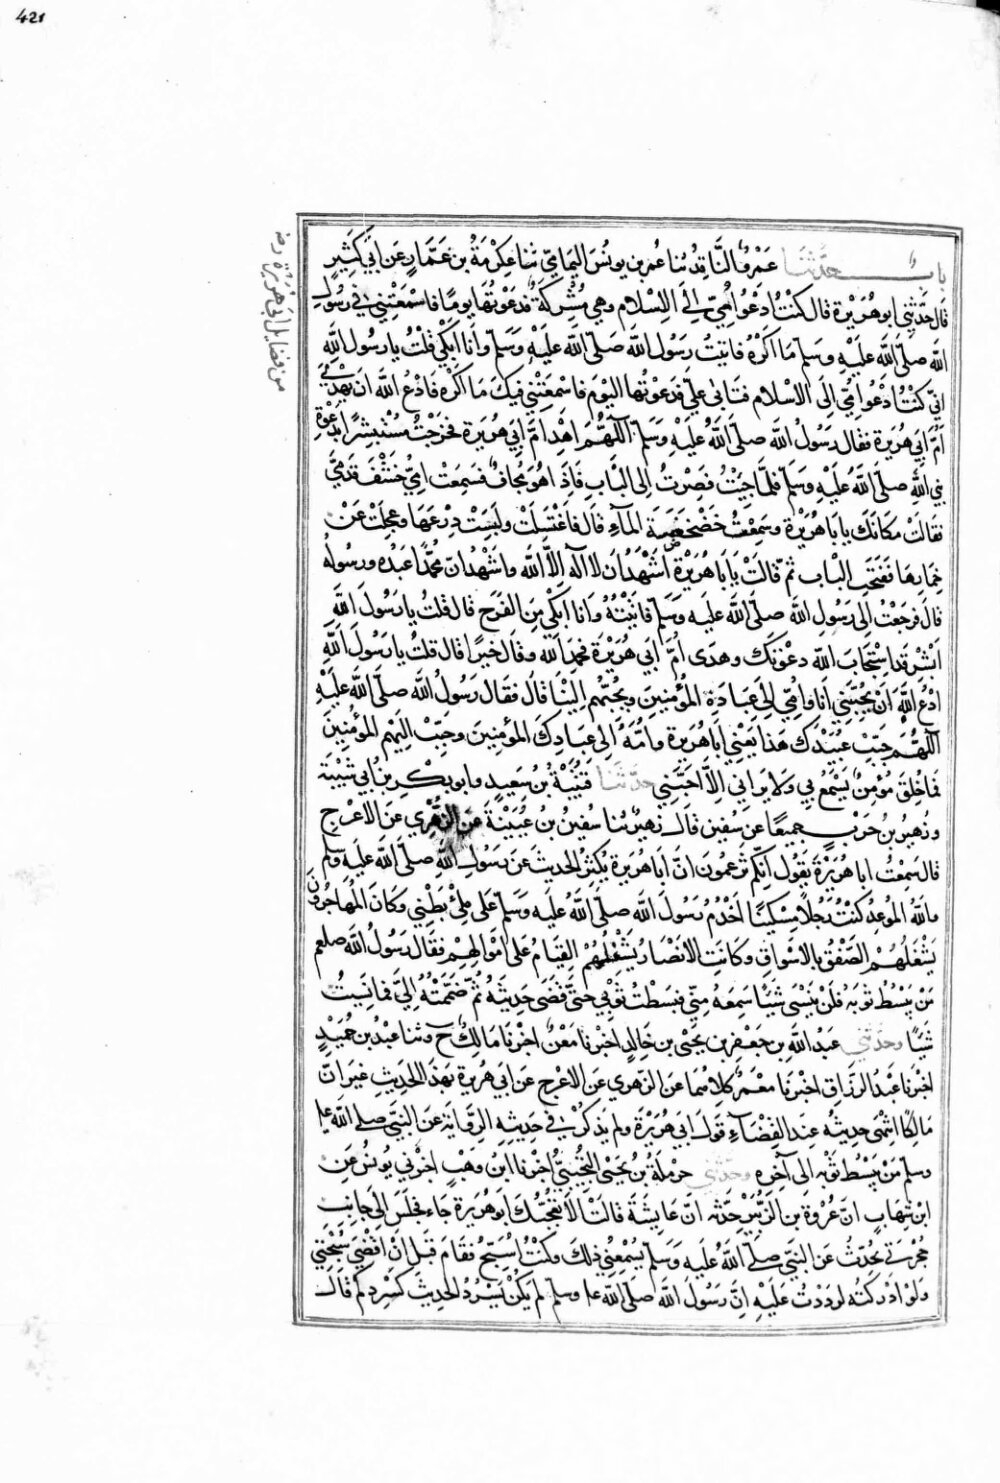 421
من فضايل ابي هريرة رضه
باب حدثنا عمرو الناقد ثنا عمر بن يونس اليمامي ثنا عكرمة بن عمار عن ابي كثير
قال حدثني ابو هريرة قال كنت ادعوا مي الى الاسلام وهي مشركة فدعوتها يوما فاسمعتني في رسول
الله صلى الله عليه وسلم ما اكره فاتيت رسول الله صلى الله عليه وسلم وانا ابكي قلت يا رسول الله
اني كنت ادعوا امي الى الاسلام فتابى علي فدعوتها اليوم فاسمعتني فيك ما اكره فادع الله ان يهدي
ام ابي هريرة فقال رسول الله صلى الله عليه وسلم اللهم اهد ام ابي هريرة فخرجت مستبشرا بدعوة
نبي الله صلى الله عليه وسلم فلما جيت فصرت الى الباب فاذا هو مجاف فسمعت امي خشف قدمي
فقالت مكانك يا با هريرة وسمعت خضخضة المآء قال فاغتسلت ولبست درعها وعجلت عن
خمارها ففتحت الباب ثم قالت يا با هريرة اشهد ان لا اله الا الله واشهد ان محمدا عبده ورسوله
قال فرجعت الى رسول الله صلى الله عليه وسلم فاتيته وانا ابكي من الفرح قال قلت يا رسول الله
ابشر قد استجاب الله دعوتك وهدى ام ابي هريرة فحمد الله وقال خيرا قال قلت يا رسول الله
ادع الله ان يحببني انا وامي الى عباده المؤمنين ويحببهم الينا قال فقال رسول الله صلى الله عليه
اللهم حبب عبيدك هذا يعني ابا هريرة وامه الى عبادك المؤمنين وحبب اليهم المؤمنين
فما خلق مؤمن يسمع بي ولا يراني الا احبني حدثنا قتيبة بن سعيد وابو بكر بن ابي شيبة
وزهير بن حرب جميعا عن سفين قال زهير ثنا سفين بن عيينة عن الزهري عن الاعرج
قال سمعت ابا هريرة يقول انكم تزعمون ان ابا هريرة يكثر الحديث عن رسول الله صلى الله عليه وسلم
والله الموعد كنت رجلا مسكينا اخدم رسول الله صلى الله عليه وسلم على ملئ بطني وكان المهاجرون
يشغلهم الصفق بالاسواق وكانت الانصار يشغلهم القيام على اموالهم فقال رسول الله صلعم
من يبسط ثوبه فلن ينسى شيئا سمعه مني فبسطت ثوبي حتى قضى حديثه ثم ضممته الي فما نسيت
شيئا وحدثني عبد الله بن جعفر بن يحيى بن خالد اخبرنا معن اخبرنا مالك ح وثنا عبد بن حميد
اخبرنا عبد الرزاق اخبرنا معمر كلاهما عن الزهري عن الاعرج عن ابي هريرة بهذا الحديث غير ان
مالكا انتهى حديثه عند انقضاء قول ابي هريرة ولم يذكر في حديثه الرواية عن النبي صلى الله عليه
وسلم من يبسط ثوبه الى آخره وحدثني حرملة بن يحيى التجيبي اخبرنا ابن وهب اخبرني يونس عن
ابن شهاب ان عروة بن الزبير حدثه ان عايشة قالت الا يعجبك ابو هريرة جاء فجلس الى جانب
حجرتي يحدث عن النبي صلى الله عليه وسلم يسمعني ذلك وكنت اسبح فقام قبل ان اقضي سبحتي
ولو ادركته لرددت عليه ان رسول الله صلى الله عليه وسلم لم يكن يسرد الحديث كسردكم قال